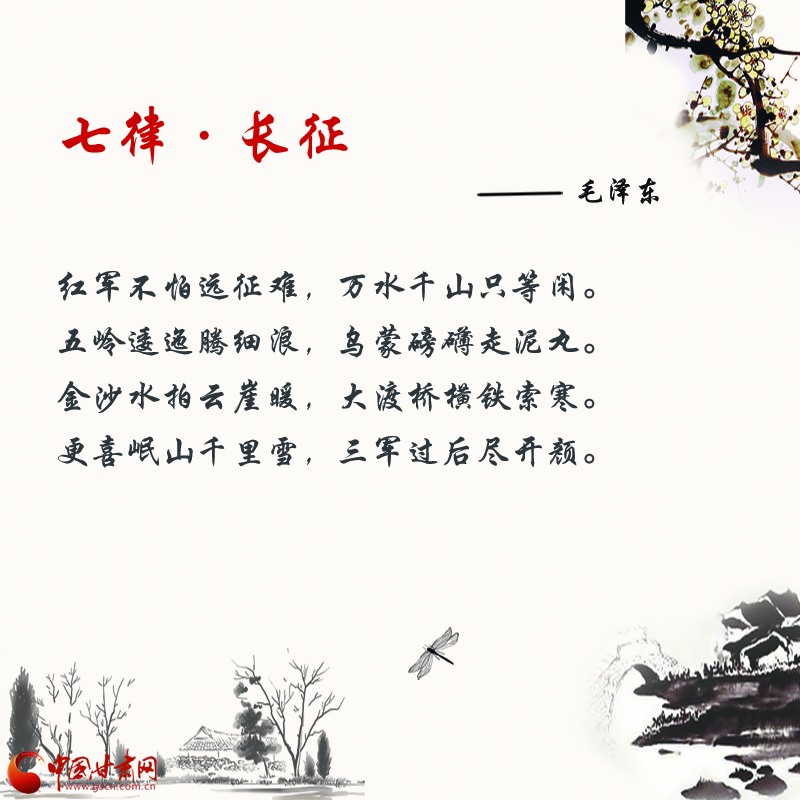 七律·长征
—— 毛泽东
红军不怕远征难，万水千山只等闲。
五岭逶迤腾细浪，乌蒙磅礴走泥丸。
金沙水拍云崖暖，大渡桥横铁索寒。
更喜岷山千里雪，三军过后尽开颜。
中国甘肃网
www.gscn.com.cn